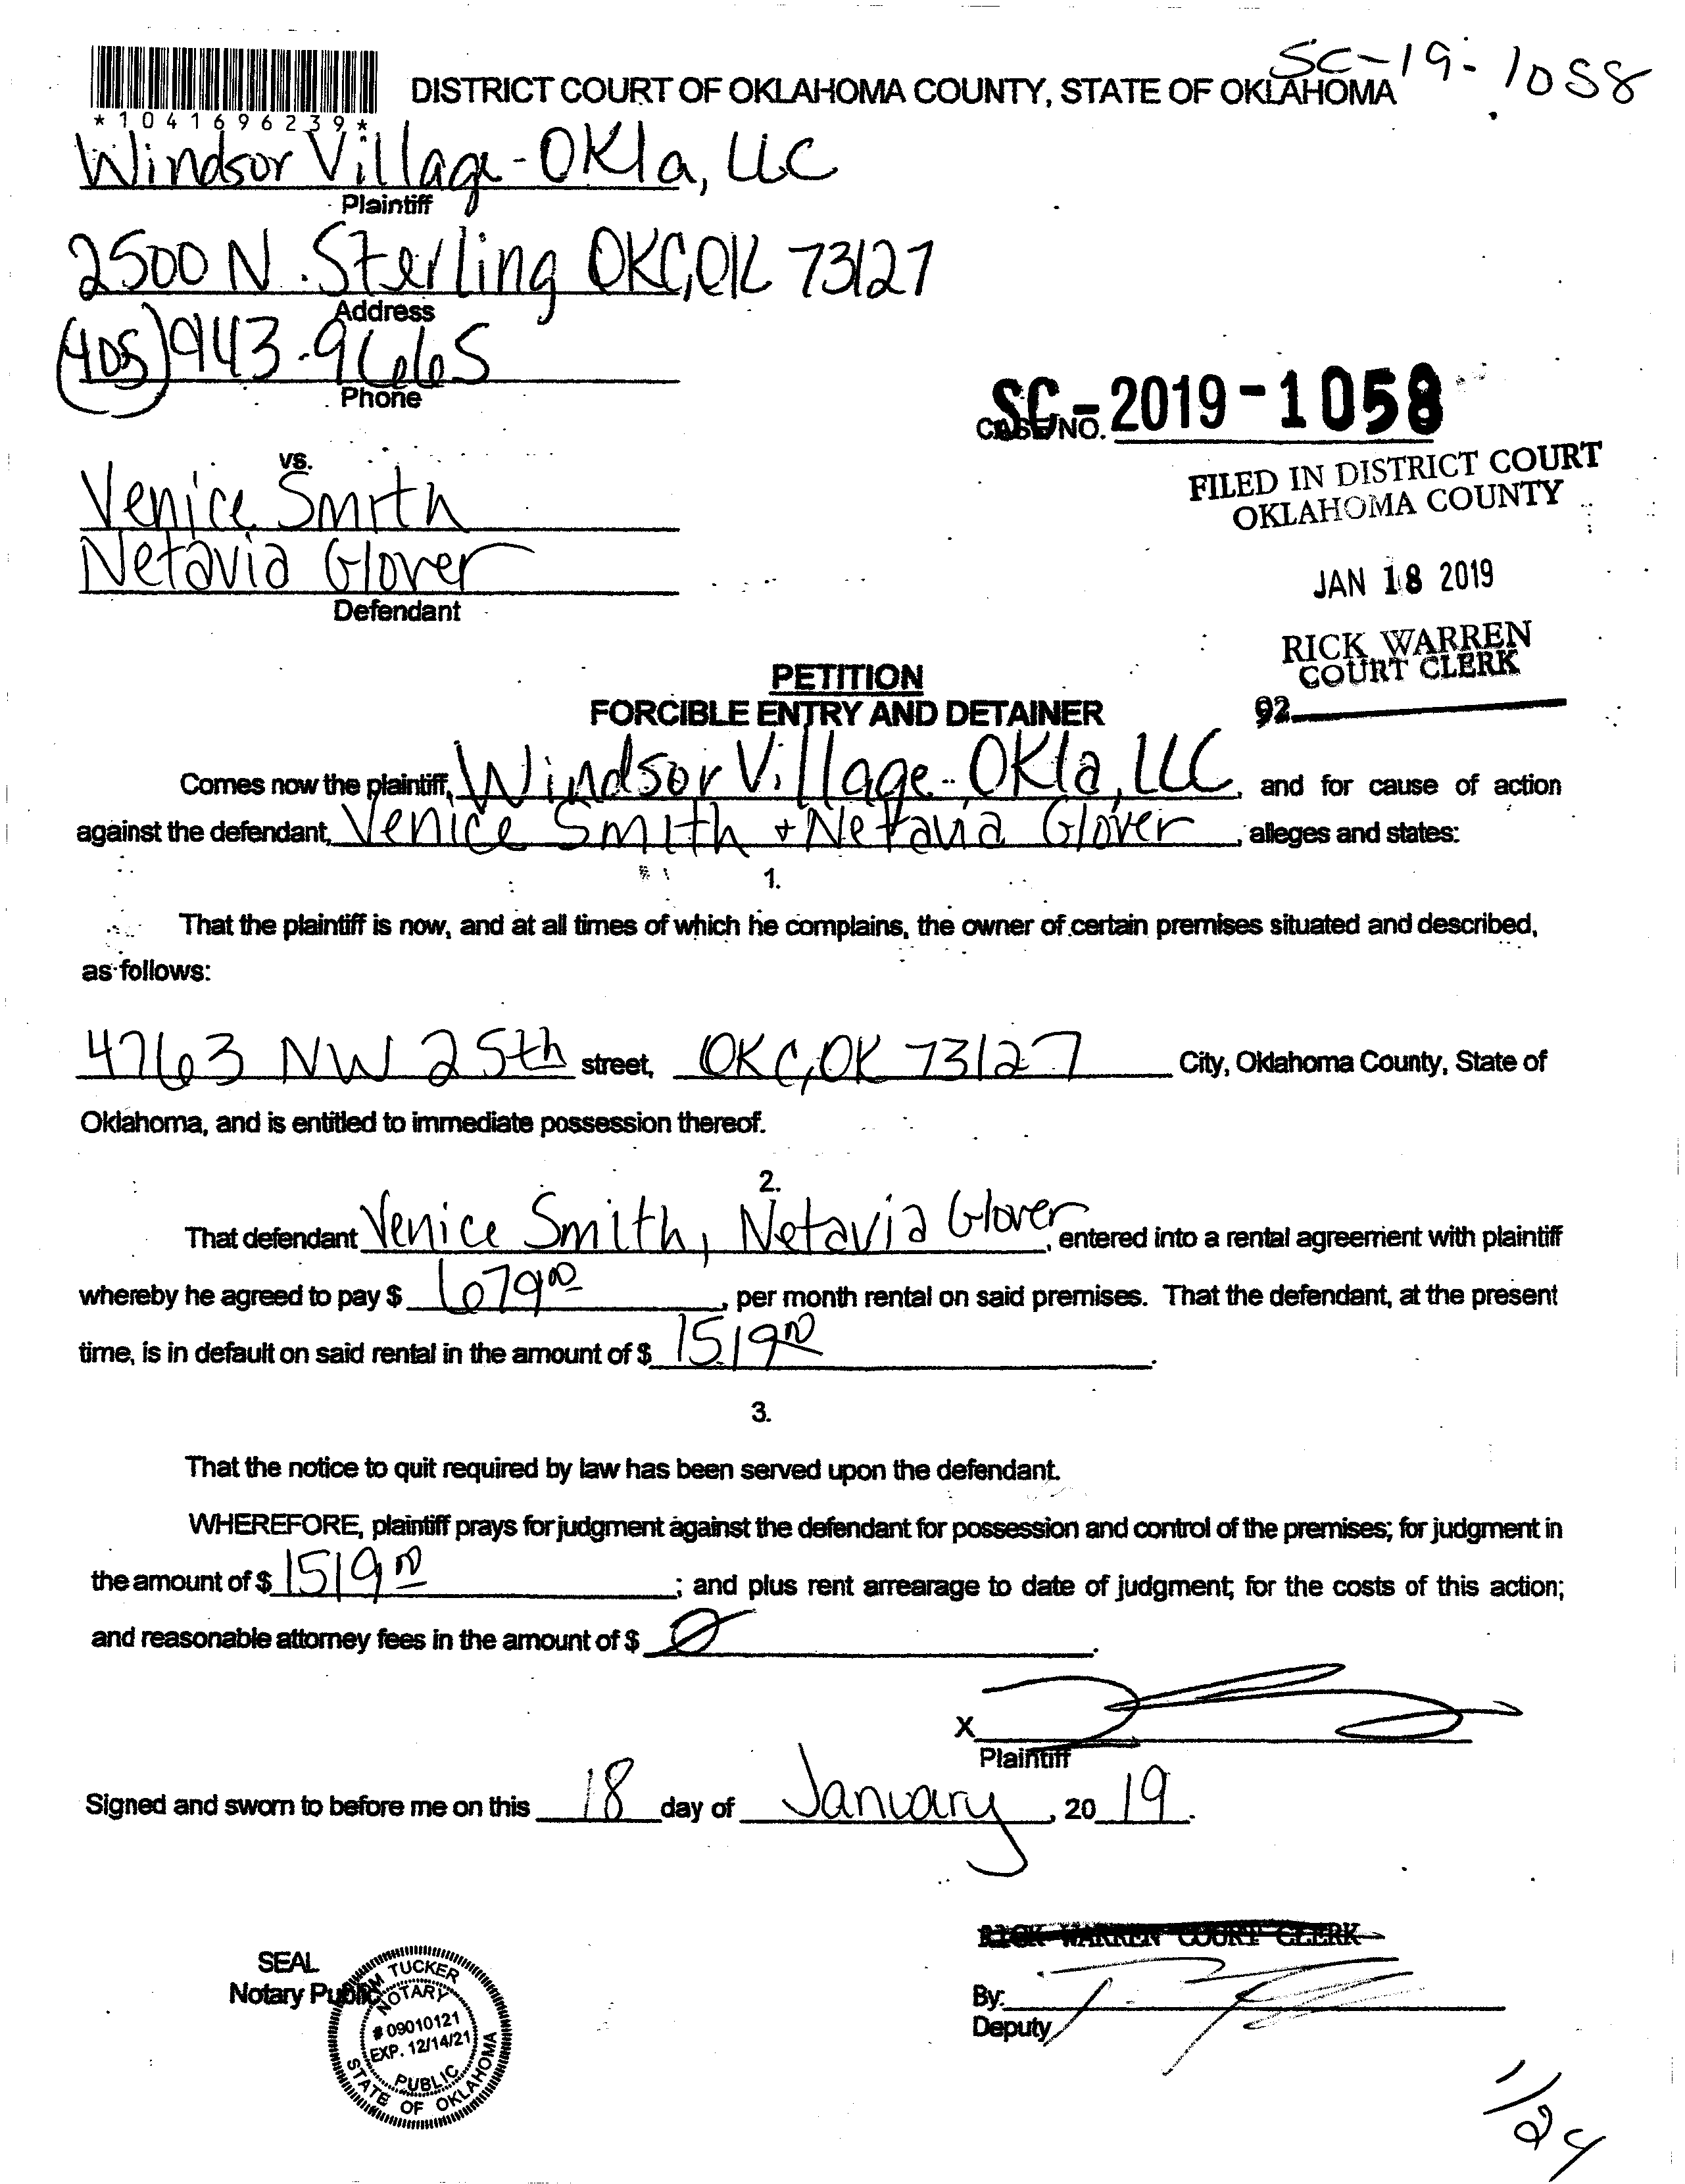 SC-19-1058
DISTRICT COURT OF OKLAHOMA COUNTY, STATE OF OKLAHOMA
*1041696239*
Windsor Village-OKla, LLC
Plaintiff
2500 N. Sterling OKC,OK 73127
Address
(405) 943-9665
Phone
SC-2019-1058
CASE NO.
FILED IN DISTRICT COURT
OKLAHOMA COUNTY
JAN 18 2019
RICK WARREN
COURT CLERK
92
vs.
Venice Smith
Netavia Glover
Defendant
PETITION
FORCIBLE ENTRY AND DETAINER
Comes now the plaintiff, Windsor Village-OKla, LLC, and for cause of action
against the defendant, Venice Smith + Netavia Glover, alleges and states:
1.
That the plaintiff is now, and at all times of which he complains, the owner of certain premises situated and described,
as follows:
4763 NW 25th street, OKC,OK 73127 City, Oklahoma County, State of
Oklahoma, and is entitled to immediate possession thereof.
2.
That defendant Venice Smith, Netavia Glover, entered into a rental agreement with plaintiff
whereby he agreed to pay $ 679 00, per month rental on said premises. That the defendant, at the present
time, is in default on said rental in the amount of $ 1519 00.
3.
That the notice to quit required by law has been served upon the defendant.
WHEREFORE, plaintiff prays for judgment against the defendant for possession and control of the premises; for judgment in
the amount of $ 1519 00; and plus rent arrearage to date of judgment; for the costs of this action;
and reasonable attorney fees in the amount of $ 0.
X
Plaintiff
Signed and sworn to before me on this 18 day of January, 2019.
RICK WARREN COURT CLERK
SEAL
Notary Public
By:
Deputy
TUCKER
NOTARY
# 09010121
EXP. 12/14/21
PUBLIC
STATE OF OKLAHOMA
1/24